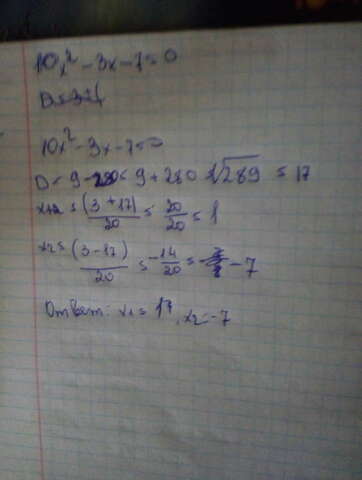 10x² - 3x - 7 = 0
10x² - 3x - 7 = 0
D = 9 - 280 = 9 + 280 = √289 = 17
x₁ = (3 + 17)/20 = 20/20 = 1
x₂ = (3 - 17)/20 = -14/20 = -7
Ответ: x₁ = 17, x₂ = -7